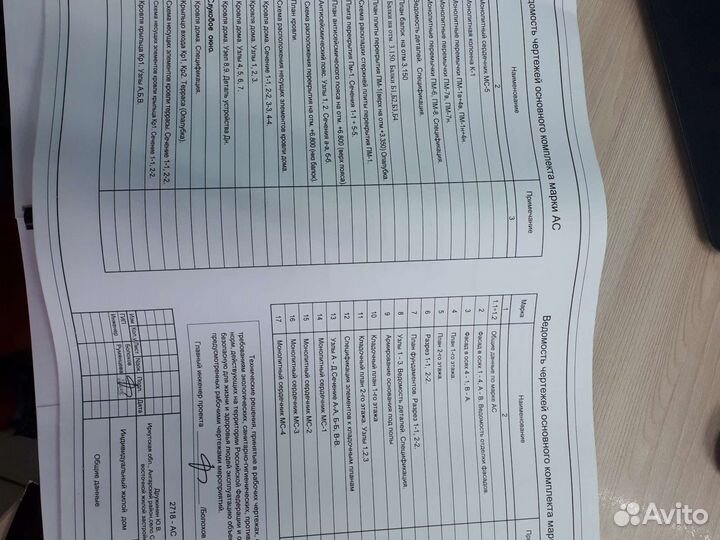 Ведомость чертежей основного комплекта
Марка
Наименование
1
2
1.1÷1.2
Общие данные по марке АС
2
Фасад в осях 1 - 4, А - В. Ведомость отделки фасадов
3
Фасад в осях 4 - 1, В - А.
4
План 1-го этажа
5
План 2-го этажа.
6
Разрез 1-1, 2-2.
7
План фундаментов. Разрез 1-1, 2-2.
8
Узлы 1 - 3. Ведомость деталей. Спецификация.
9
Армирование основания под полы
10
Кладочный план 1-го этажа
11
Кладочный план 2-го этажа. Узлы 1,2,3
12
Спецификация элементов к кладочным планам
13
Узлы А - Д. Сечение А-А, Б-Б, В-В.
14
Монолитный сердечник МС-1
15
Монолитный сердечник МС-2
16
Монолитный сердечник МС-3
17
Монолитный сердечник МС-4
Технические решения, принятые в рабочих чертежах,
требованиям экологических, санитарно-гигиенических,
норм, действующих на территории Российской Федерации и
безопасную для жизни и здоровья людей эксплуатацию
предусмотренных рабочими чертежами мероприятий.
Главный инженер проекта
/Болохов
2718 - АС
Дружинин Ю.В.
Иркутская обл., Ангарский район,село
восточней жилой
Изм
Кол
Лист
№док
Подп
Дата
ГИП
Болохов
Инженер
Румянцева
Индивидуальный жилой дом
Общие данные
Ведомость чертежей основного комплекта марки АС
Наименование
Примечание
2
3
Монолитный сердечник МС-5
Монолитная колонна К-1
Монолитные перемычки ПМ-1в÷4в, ПМ-1н÷4н.
Монолитные перемычки ПМ-7в, ПМ-7н.
Монолитные перемычки ПМ-6, ПМ-8. Спецификация.
Ведомость деталей. Спецификация.
План балок на отм.3.150
Балки на отм. 3.150. Балки Б1,Б2,Б3,Б4.
План плиты перекрытия ПМ-1(верх на отм.+3,350) Опалубка.
Схема раскладки стержней плиты перекрытия ПМ-1.
Плита перекрытия Пм-1. Сечения 1-1 ÷ 5-5.
План антисейсмического пояса на отм. +6,800 (верх пояса)
Антисейсмический пояс. Узлы 1, 2. Сечения а-а, б-б.
Схема расположения перекрытия на отм. +6,800 (низ балок).
План кровли.
Схема расположения несущих элементов кровли дома.
Кровля дома. Сечение 1-1, 2-2, 3-3, 4-4.
Кровля дома. Узлы 1, 2, 3.
Кровля дома. Узлы 4, 5, 6, 7.
Кровля дома. Узел 8,9. Деталь устройства Дн.
Слуховое окно.
Кровля дома. Спецификация.
Крыльцо входа Кр1, Кр2, Терраса (Опалубка).
Схема несущих элементов кровли террасы. Сечение 1-1, 2-2.
Схема несущих элементов кровли крыльца Кр1. Сечение 1-1, 2-2.
Кровля крыльца Кр1. Узлы А,Б,В.
Avito